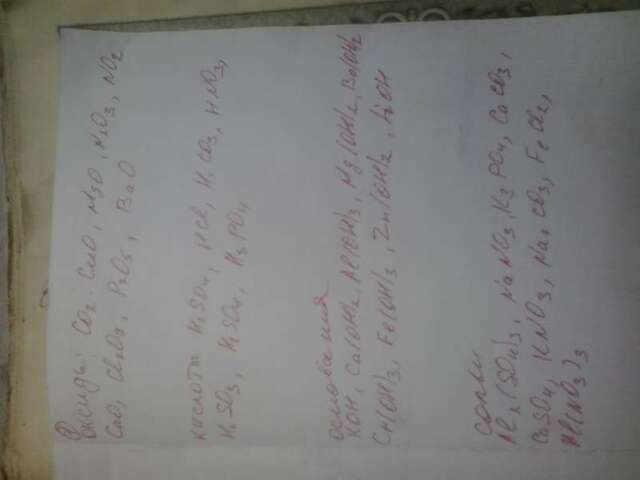 ② оксиды: CO2. CuO, MgO, N2O3, NO2
CaO, Cl2O7, P2O5, BaO
кислоты H2SO4, HCl, H2CO3, HNO3,
H2SO3, H2SO4, H3PO4
основания
KOH, Ca(OH)2, Al(OH)3, Mg(OH)2, Ba(OH)2
Cr(OH)3, Fe(OH)3, Zn(OH)2, LiOH
соли
Al2(SO4)3, NaNO3, K3PO4, CaCO3,
CaSO4, KNO3, Na2CO3, FeCl2,
Al(NO3)3